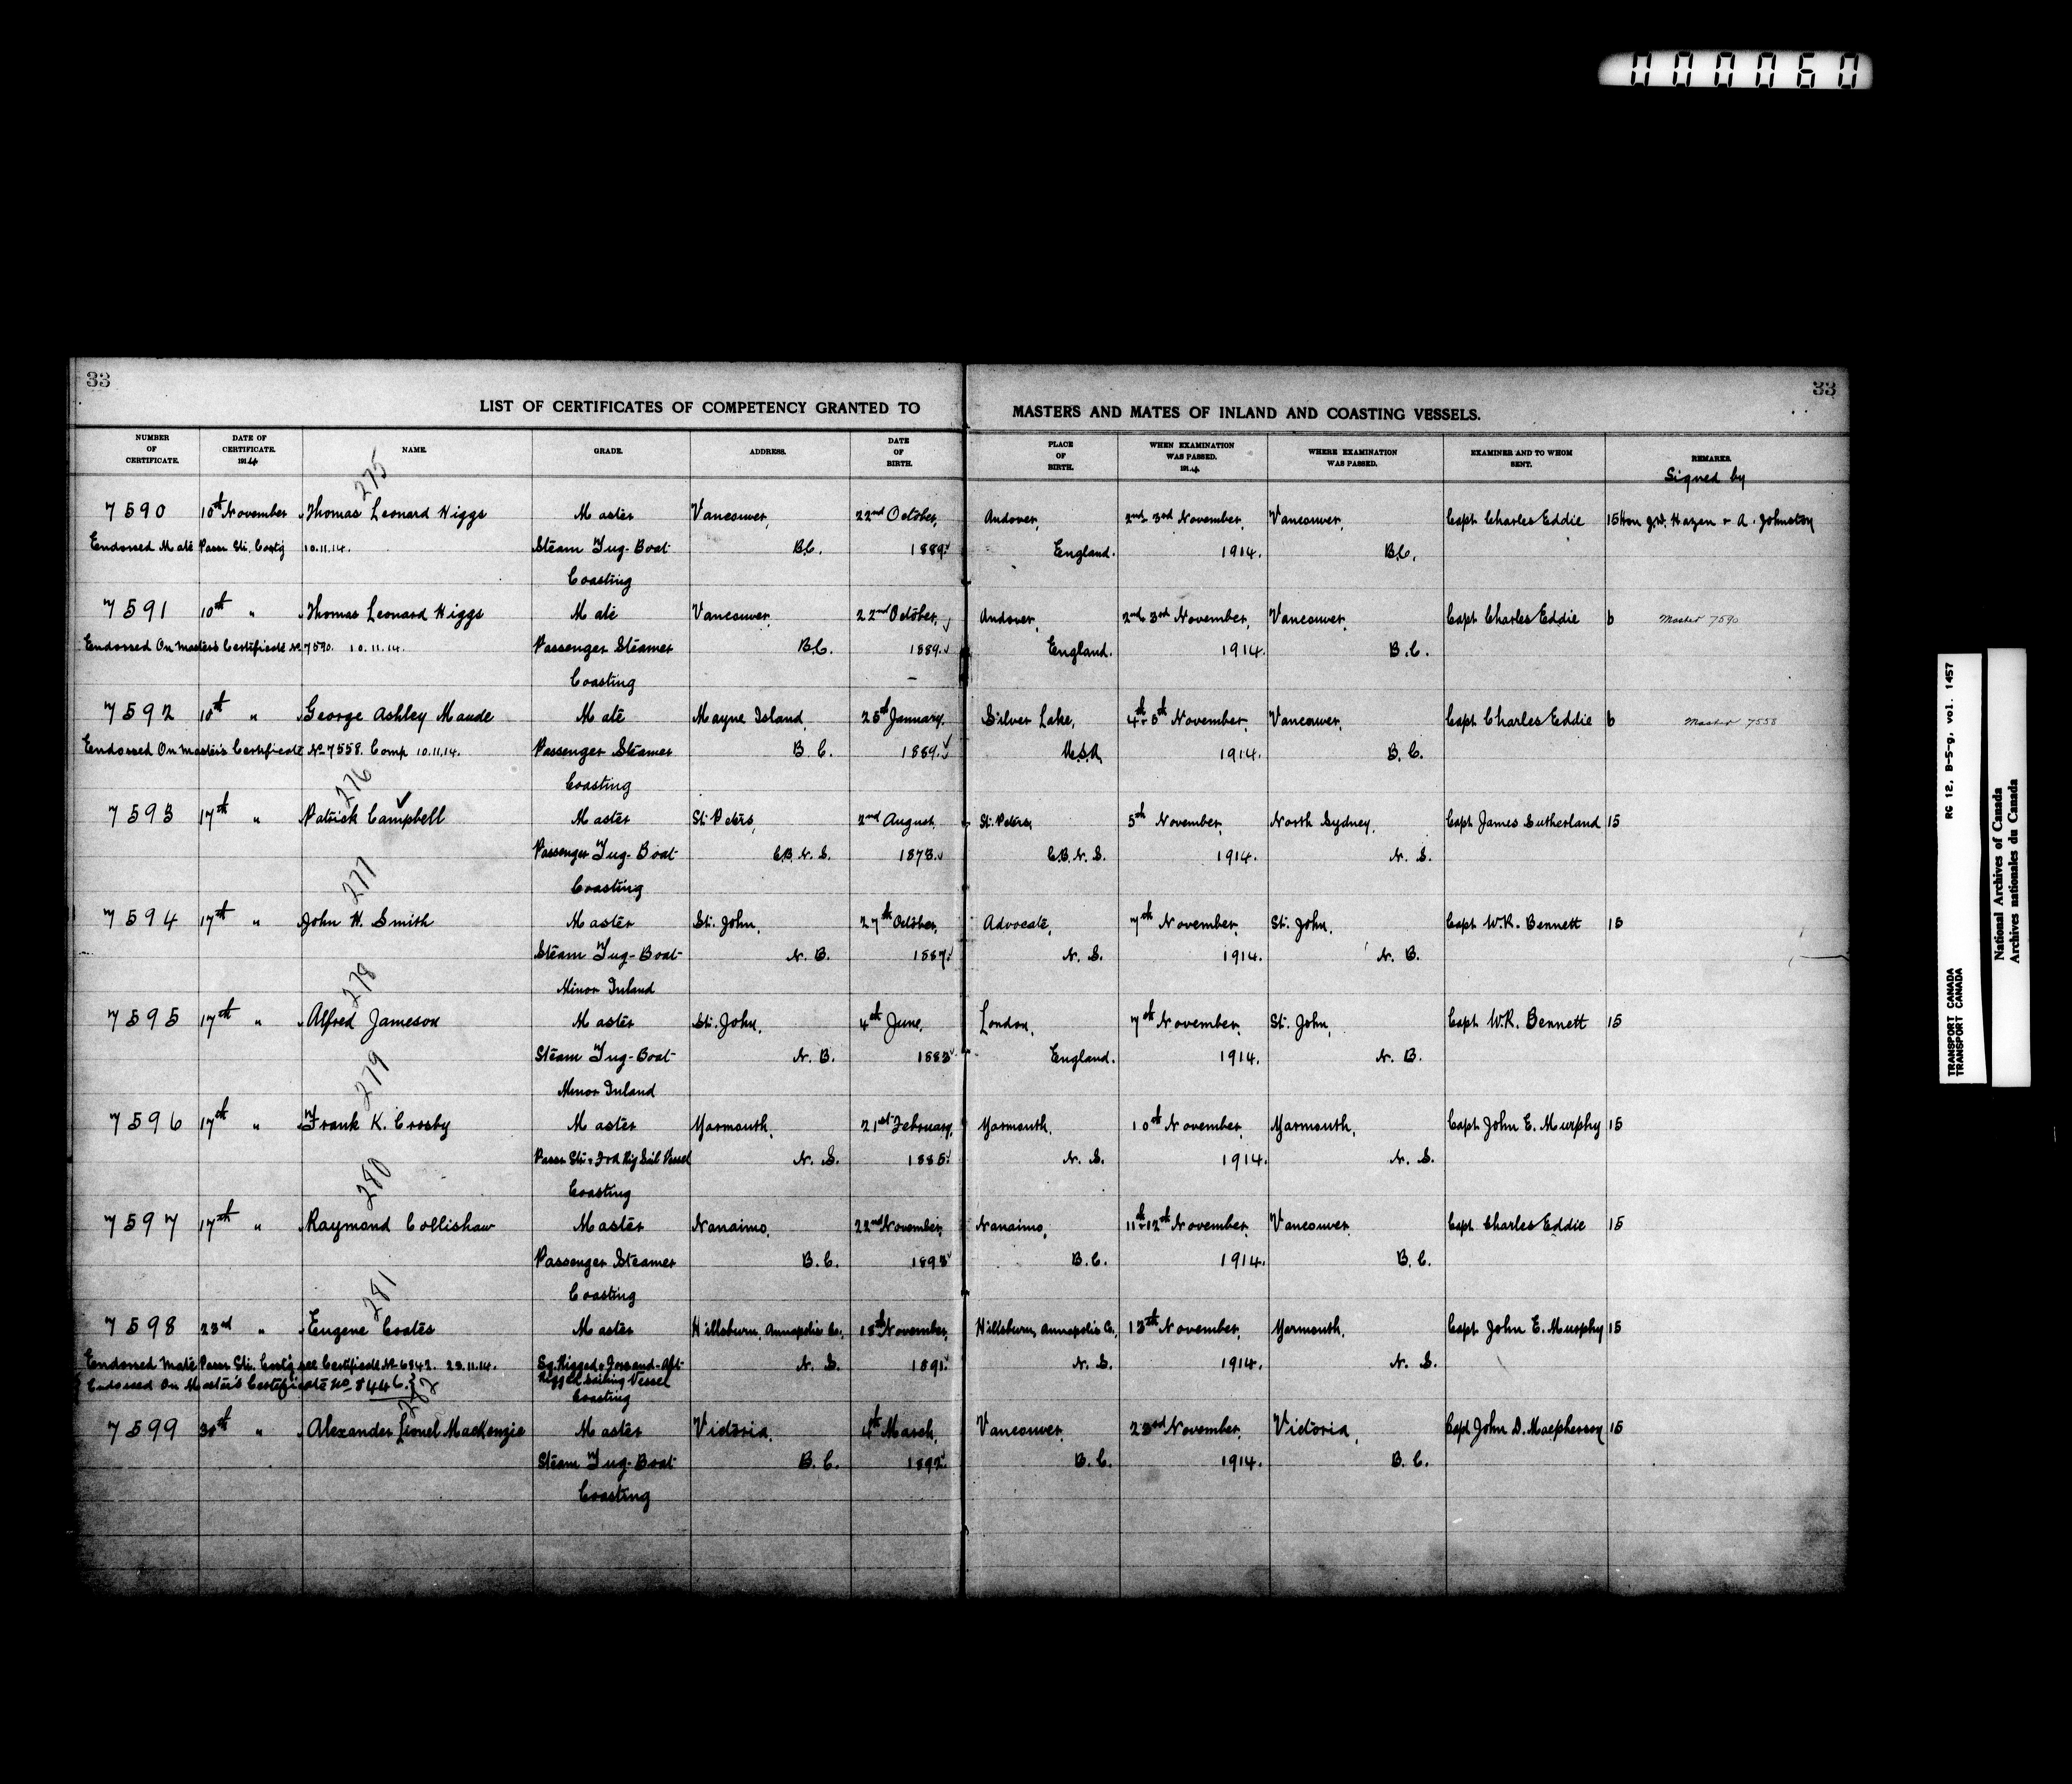 000060
33
33
LIST OF CERTIFICATES OF COMPETENCY GRANTED TO MASTERS AND MATES OF INLAND AND COASTING VESSELS.
NUMBER OF CERTIFICATE. DATE OF CERTIFICATE. 1914 NAME. GRADE. ADDRESS. DATE OF BIRTH. PLACE OF BIRTH. WHEN EXAMINATION WAS PASSED. 1914 WHERE EXAMINATION WAS PASSED. EXAMINER AND TO WHOM SENT. REMARKS.
Signed by
275
7590 10th November Thomas Leonard Higgs Master Vancouver, 22nd October, Andover, 2nd 3rd November, Vancouver, Capt Charles Eddie 15 Hon J.D. Hazen & A. Johnston
Endorsed Mate Passr Str. Coastg 10.11.14. Steam Tug-Boat B.C. 1889. England. 1914. B.C.
Coasting
7591 10th " Thomas Leonard Higgs Mate Vancouver, 22nd October, Andover, 2nd 3rd November, Vancouver, Capt Charles Eddie 6 Master 7590
Endorsed On Master's Certificate No 7590. 10.11.14. Passenger Steamer B.C. 1889. England. 1914. B.C.
Coasting
7592 10th " George Ashley Maude Mate Mayne Island, 25th January, Silver Lake, 4th & 5th November, Vancouver, Capt Charles Eddie 6 Master 7558
Endorsed On Master's Certificate No 7558. Comp 10.11.14. Passenger Steamer B.C. 1889. U.S.A. 1914. B.C.
Coasting
276
7593 17th " Patrick Campbell Master St. Peters, 2nd August, St. Peters, 5th November, North Sydney, Capt James Sutherland 15
Passenger Tug-Boat C.B. N.S. 1873. C.B. N.S. 1914. N.S.
Coasting
277
7594 17th " John H. Smith Master St. John, 27th October, Advocate, 7th November, St. John, Capt W.R. Bennett 15
Steam Tug-Boat N.B. 1887. N.S. 1914. N.B.
Minor Inland
278
7595 17th " Alfred Jameson Master St. John, 4th June, London, 7th November, St. John, Capt W.R. Bennett 15
Steam Tug-Boat N.B. 1883 England. 1914. N.B.
Minor Inland
279
7596 17th " Frank K. Crosby Master Yarmouth, 21st February, Yarmouth, 10th November, Yarmouth, Capt John E. Murphy 15
Passr Str & Frd Rig Sail Vessel N.S. 1885. N.S. 1914. N.S.
Coasting
280
7597 17th " Raymond Collishaw Master Nanaimo, 22nd November, Nanaimo, 11th & 12th November, Vancouver, Capt Charles Eddie 15
Passenger Steamer B.C. 1893 B.C. 1914. B.C.
Coasting
281
7598 23rd " Eugene Coates Master Hillsburn, Annapolis Co., 18th November, Hillsburn, Annapolis Co., 13th November, Yarmouth, Capt John E. Murphy 15
Endorsed Mate Passr Str. Coastg see Certificate No 6342. 23.11.14. Sq. Rigged & Fore-and-Aft N.S. 1891. N.S. 1914. N.S.
Endorsed On Master's Certificate No 8446. Rigged Sailing Vessel
Coasting
282
7599 30th " Alexander Lionel MacKenzie Master Victoria, 4th March, Vancouver, 23rd November, Victoria, Capt John D. Macpherson 15
Steam Tug-Boat B.C. 1892. B.C. 1914. B.C.
Coasting
TRANSPORT CANADA RG 12, B-5-g, vol. 1457
TRANSPORT CANADA
National Archives of Canada
Archives nationales du Canada